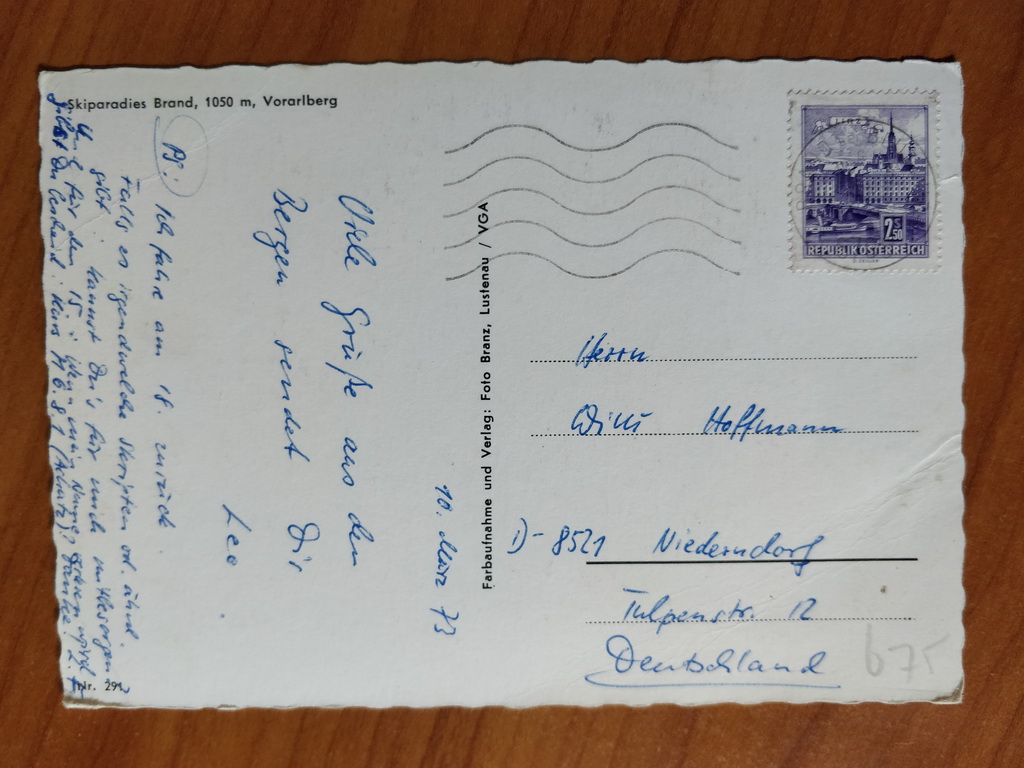 Skiparadies Brand, 1050 m, Vorarlberg
10. März 73
Viele Grüße aus den
Bergen sendet Dir
Leo.
PS: Ich fahre am 18. zurück.
Falls es irgendwelche Skripten od. ähnl.
gibt, kannst Du's für mich mitbesorgen?
für den 15.
Nr. 291
Farbaufnahme und Verlag: Foto Branz, Lustenau / VGA
2.50
REPUBLIK ÖSTERREICH
Herrn
Willi Hoffmann
D-8521 Niederndorf
Tulpenstr. 12
Deutschland
675